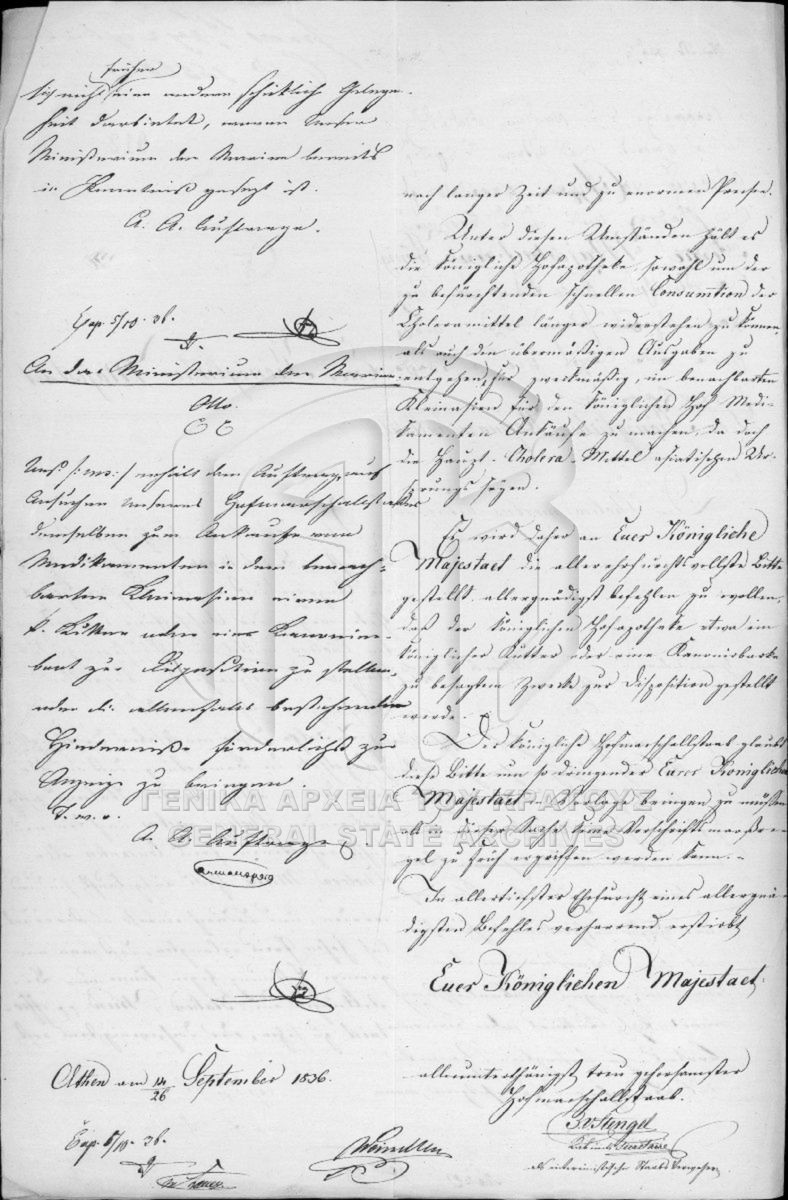 früher
sich nicht eine andere schickliche Gelegen-
heit darbietet, wovon Unser
Ministerium der Marine bereits
in Kenntniß gesezt ist.
A. A. Auftrage.
Exp. 5/10. 36.
An das Ministerium der Marine.
Otto.
erhält den Auftrag, auf
Ansuchen Unseres Hofmarschallstabes
demselben zum Ankaufe von
Medikamenten in dem benach-
barten Kleinasien einen
k. Kutter oder eine Kanonier-
boot zur Disposition zu stellen,
oder die allenfalls bestehenden
Hinderniße förderlichst zur
Anzeige zu bringen.
A. A. Auftrage
Athen am 14/26 September 1836.
Exp. 6/10. 36.
nach langer Zeit und zu enormen Preisen.
Unter diesen Umständen hält es
die königliche Hofapotheke, sowohl um der
zu befürchtenden schnellen Consumtion der
Choleramittel länger widerstehen zu können,
als auch den übermäßigen Ausgaben zu
entgehen, für zweckmäßig, im benachbarten
Kleinasien für den königlichen Hof Medi-
kamenten Ankäufe zu machen, da doch
die Haupt-Cholera-Mittel asiatischen Ur-
sprungs seyen.
Es wird daher an Euer Königliche
Majestaet die allerehrfurchtsvollste Bitte
gestellt, allergnädigst befehlen zu wollen,
daß der königlichen Hofapotheke etwa ein
königlicher Kutter oder eine Kanonierbarke
zu besagtem Zwecke zur Disposition gestellt
werde.
Der königliche Hofmarschallstaab glaubt
diese Bitte um so dringender Euerer Königlichen
Majestaet in Vorlage bringen zu müssen
als in dieser Sache keine Vorsichtsmaaßre-
gel zu früh ergriffen werden kann.
In allertiefster Ehrfurcht eines allergnä-
digsten Befehles verharrend erstirbt
Euer Königlichen Majestaet.
allerunterthänigst treu gehorsamster
Hofmarschallstaab.
Stengel
Secretaire
ΓΕΝΙΚΑ ΑΡΧΕΙΑ ΤΟΥ ΚΡΑΤΟΥΣ
GENERAL STATE ARCHIVES